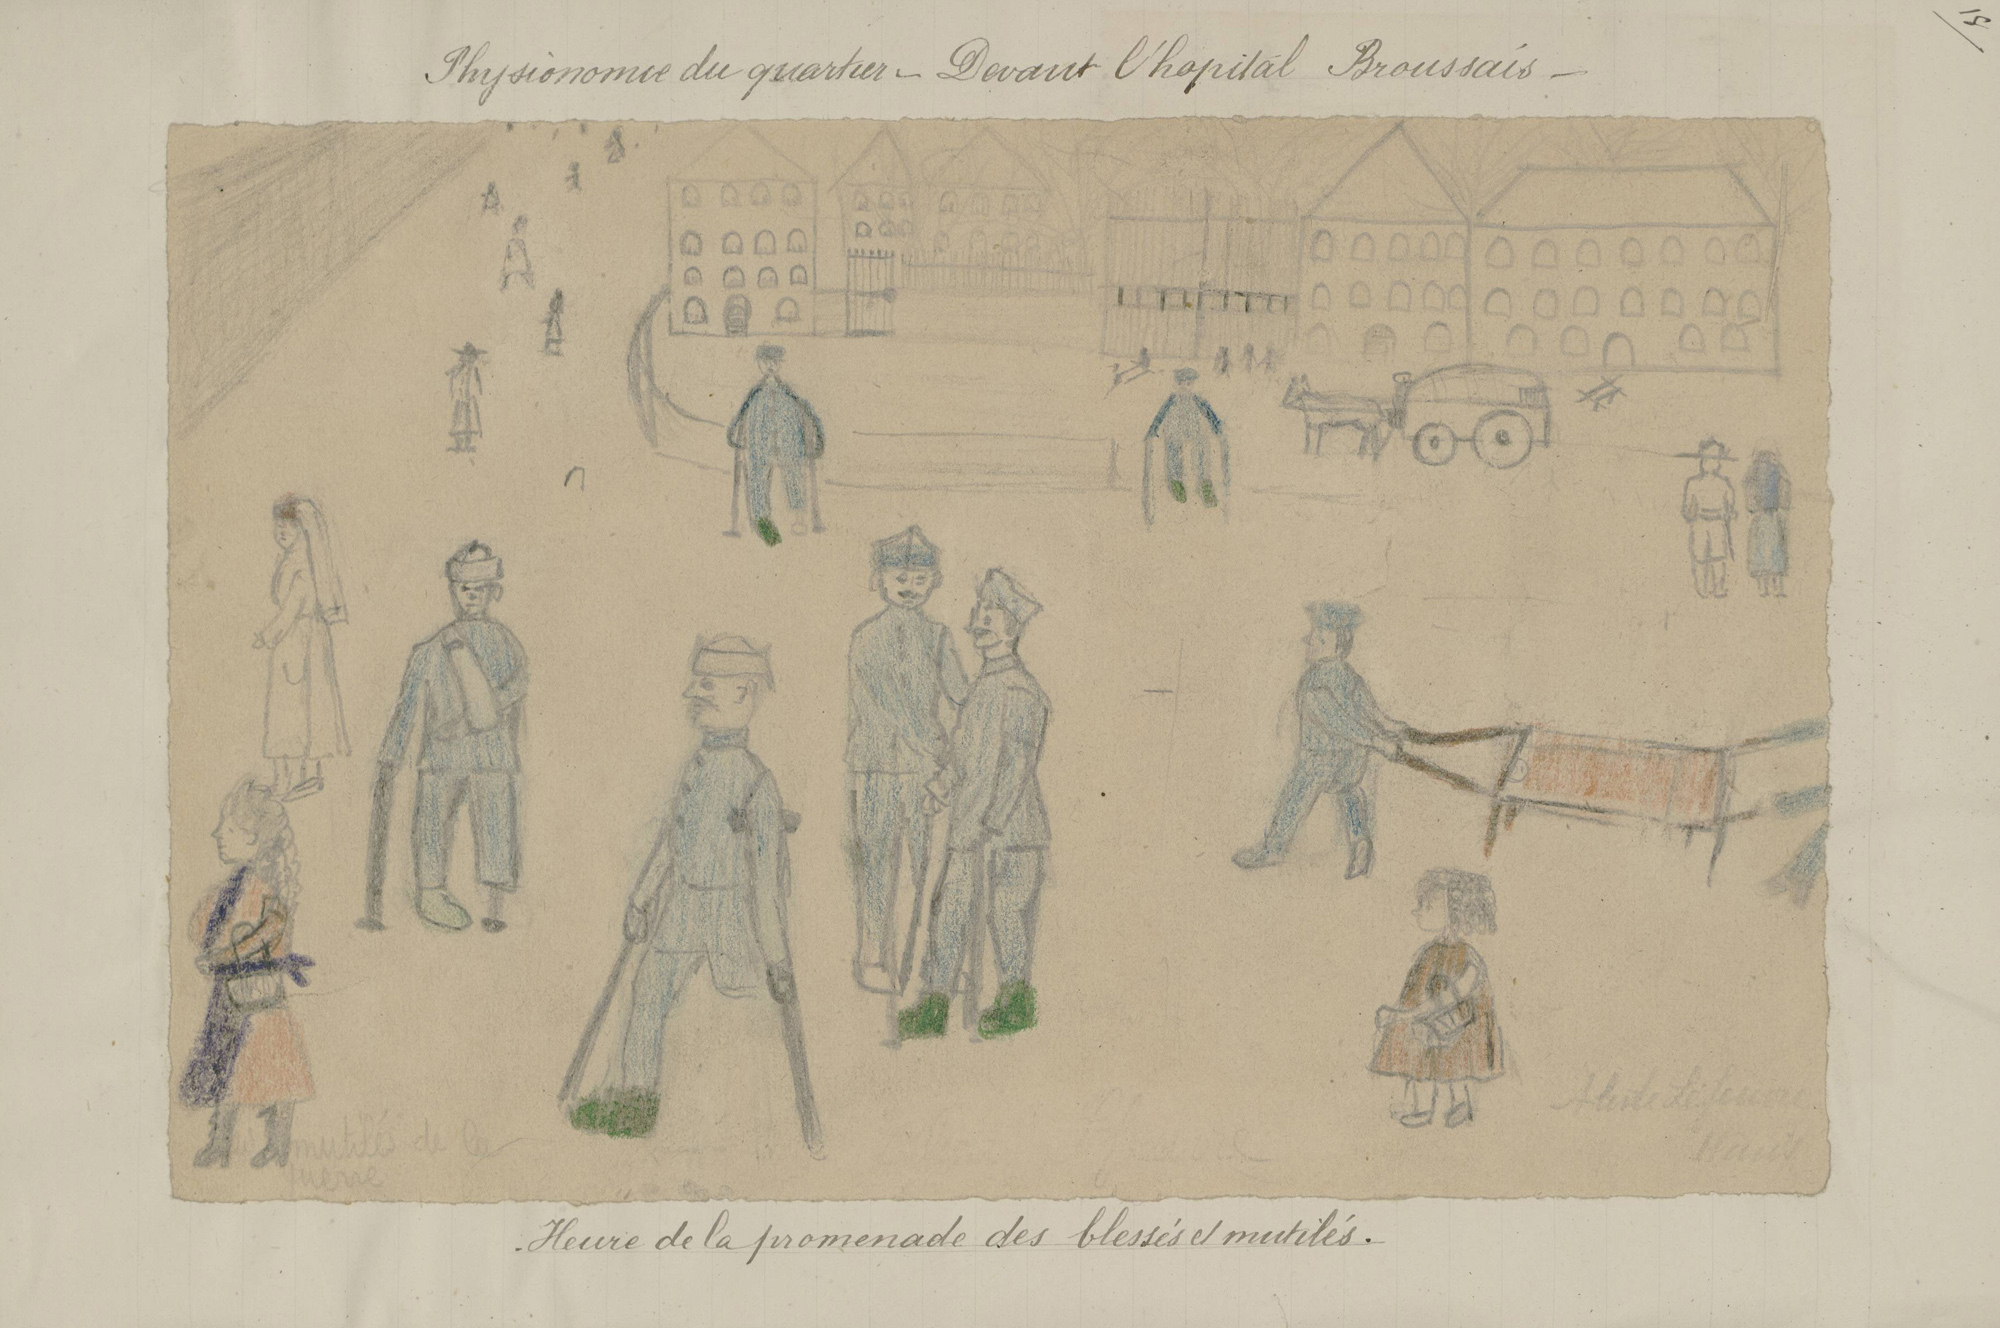 15
Physionomie du quartier - Devant l'hopital Broussais -
mutilés de la
guerre
Heure de la promenade des blessés et mutilés.